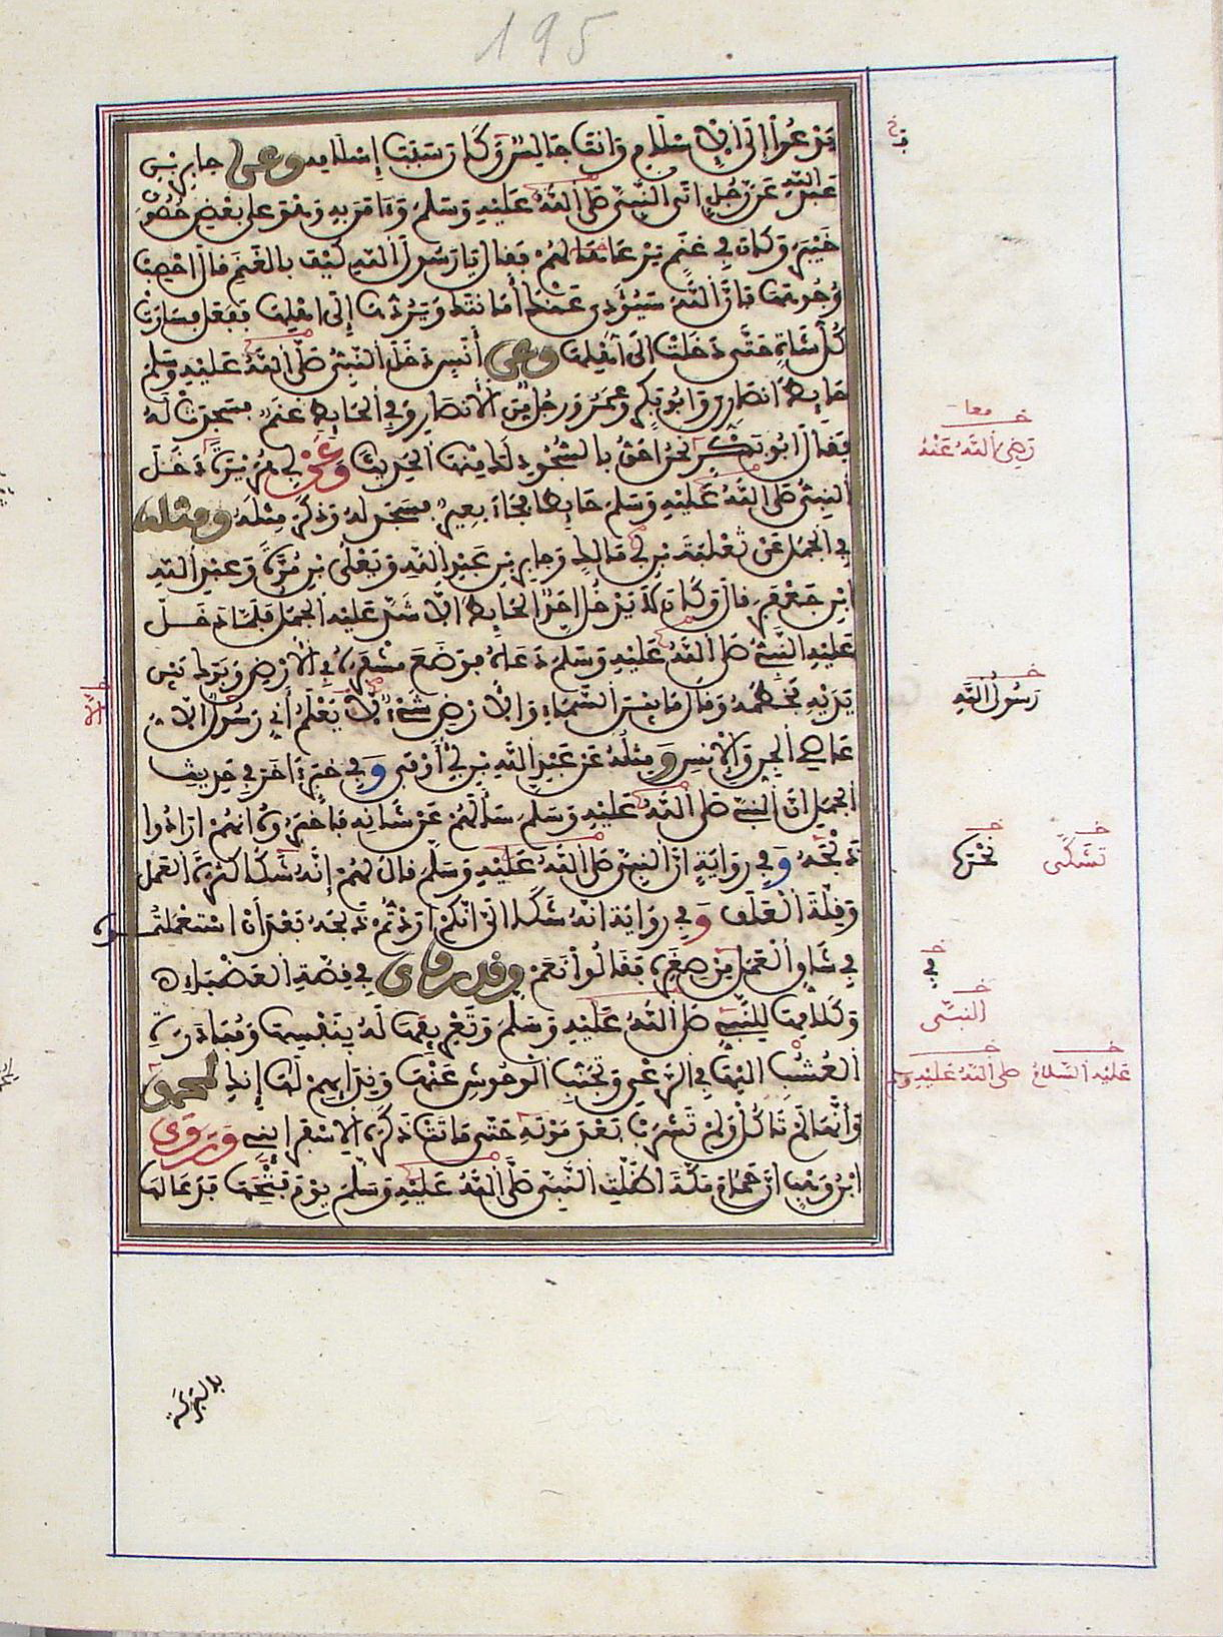 195
يَدْعُوا إلى الإسلام وأنت جالس وكان سبب إسلامه وعن جابر بن
عبد الله عن رجل اتى النبي صلى الله عليه وسلم وءامن به وهو على بعض حصون
خيبر وكان في غنم يرعاها لهم فقال يا رسول الله كيف بالغنم قال احصب
وجوهها فإن الله سيؤدي عنك أمانتك ويردها إلى اهلها ففعل فسارت
كل شاة حتى دخلت إلى أهلها وعن أنس دخل النبي صلى الله عليه وسلم
حايط انصاري وابو بكر وعمر ورجل من الأنصار وفي الحايط غنم فسجدت له
فقال ابو بكر نحن احق بالسجود لك منها الحديث وعن أبي هريرة دخل
النبي صلى الله عليه وسلم حايطا فجاء بعير فسجد له وذكر مثله ومثله
في الجمل عن ثعلبة بن أبي مالك وجابر بن عبد الله ويعلى بن مرة وعبد الله
ابن جعفر قال وكان لا يدخل احد الحايط الا شد عليه الجمل فلما دخل
عليه النبي صلى الله عليه وسلم دعاه فوضع مشفره في الأرض وبرك بين
يديه فخطمه وقال ما بين السماء والأرض شيء إلا يعلم أني رسول الا
عاصي الجن والإنس ومثله عن عبد الله بن أبي أوفى وفي خبر ءاخر في حديث
الجمل ان النبي صلى الله عليه وسلم سألهم عن شأنه فاخبروه انهم ارادوا
ذبحه وفي رواية ان النبي صلى الله عليه وسلم قال لهم إنه شكا كثرة العمل
وقلة العلف وفي رواية انه شكا الي انكم اردتم ذبحه بعد أن استعملتموه
في شاق العمل من صغره فقالوا نعم وقد روى في قصة العضباء
وكلامها للنبي صلى الله عليه وسلم وتعريفها له بنفسها ومبادرة
العشب اليها في الرعي وتجنب الوحوش عنها وندايهم لها إنك لمحمد
وأنها لم تاكل ولم تشرب بعد موته حتى ماتت ذكره الإسفرايني وروى
ابن وهب ان حمام مكة اظلت النبي صلى الله عليه وسلم يوم فتحها فدعا لها
رضي الله عنه
رسول الله
نحره
تشكى
في
النبي
عليه السلام
صلى الله عليه وسلم
بالبركة